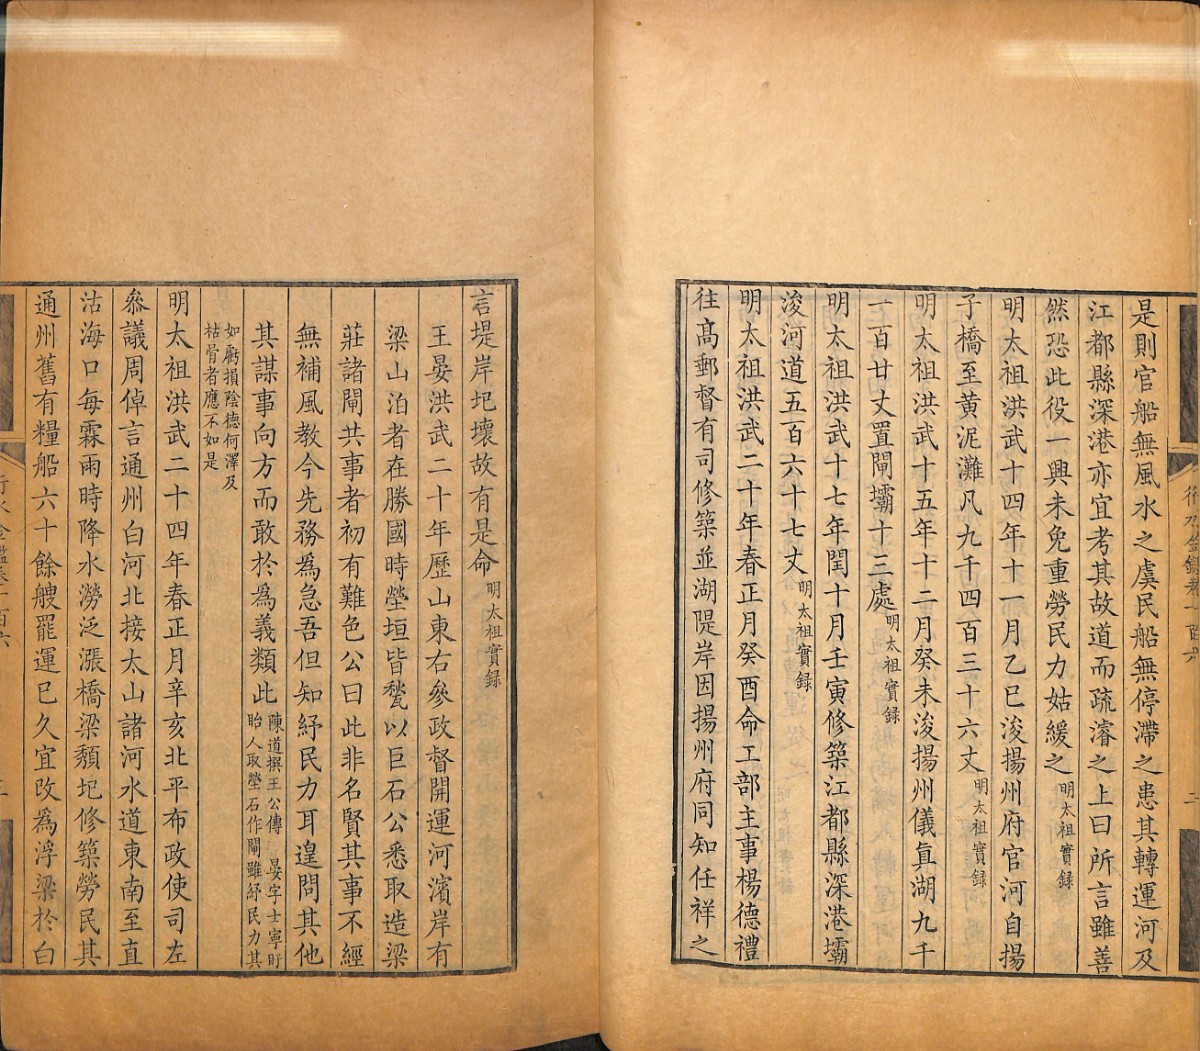 是則官船無風水之虞民船無停滯之患其轉運河及
江都縣深港亦宜考其故道而疏濬之上曰所言雖善
然恐此役一興未免重勞民力姑緩之明太祖實録
明太祖洪武十四年十一月乙巳浚揚州府官河自揚
子橋至黃泥灘凡九千四百三十六丈明太祖實録
明太祖洪武十五年十二月癸未浚揚州儀真湖九千
一百廿丈置閘壩十三處明太祖實録
明太祖洪武十七年閏十月壬寅修築江都縣深港壩
浚河道五百六十七丈明太祖實録
明太祖洪武二十年春正月癸酉命工部主事楊德禮
往高郵督有司修築並湖隄岸因揚州府同知任祥之
言堤岸圯壞故有是命明太祖實録
王晏洪武二十年歷山東右叅政督開運河濱岸有
梁山泊者在勝國時塋垣皆甃以巨石公悉取造梁
莊諸閘共事者初有難色公曰此非名賢其事不經
無補風教今先務為急吾但知紓民力耳遑問其他
其謀事向方而敢於為義類此陳道撰王公傳 晏字士寧盱
眙人取塋石作閘雖紓民力其
如虧損陰德何澤及
枯骨者應不如是
明太祖洪武二十四年春正月辛亥北平布政使司左
叅議周倬言通州白河北接太山諸河水道東南至直
沽海口每霖雨時降水澇泛漲橋梁頽圯修築勞民其
通州舊有糧船六十餘艘罷運已久宜改為浮梁於白